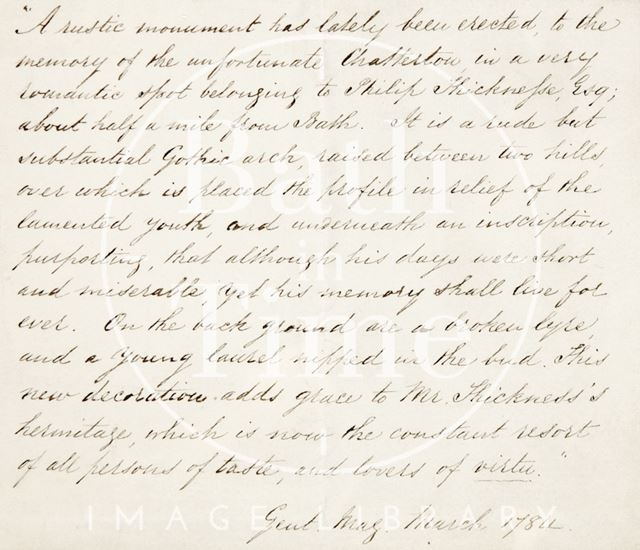 "A rustic monument has lately been erected, to the
memory of the unfortunate Chatterton, in a very
romantic spot belonging to Philip Thicknesse, Esq;
about half a mile from Bath. It is a rude but
substantial Gothic arch, raised between two hills,
over which is placed the profile in relief of the
lamented youth, and underneath an inscription,
purporting, that although his days were short
and miserable, yet his memory shall live for
ever. On the back ground are a broken lyre
and a young laurel nipped in the bud. This
new decoration adds grace to Mr. Thickness's
hermitage, which is now the constant resort
of all persons of taste, and lovers of virtu."
Gent. Mag. March 1784.
Bath
in
Time
IMAGE LIBRARY